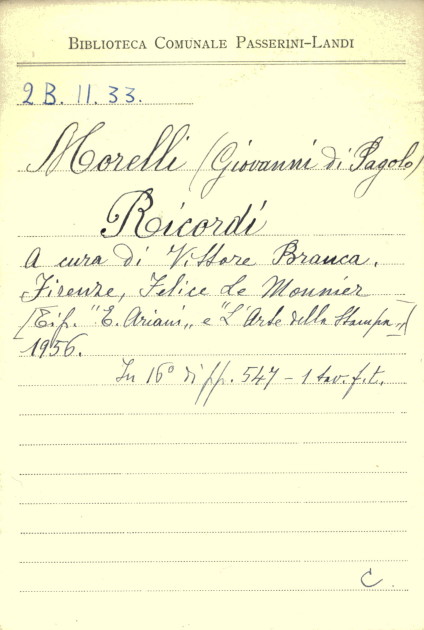 BIBLIOTECA COMUNALE PASSERINI-LANDI
2B. II. 33.
Morelli (Giovanni di Pagolo)
Ricordi
A cura di Vittore Branca.
Firenze, Felice Le Monnier
[Tip. "E. Ariani„ e "L'Arte della Stampa„]
1956.
In 16° di pp. 547 - 1 tav. f. t.
C.